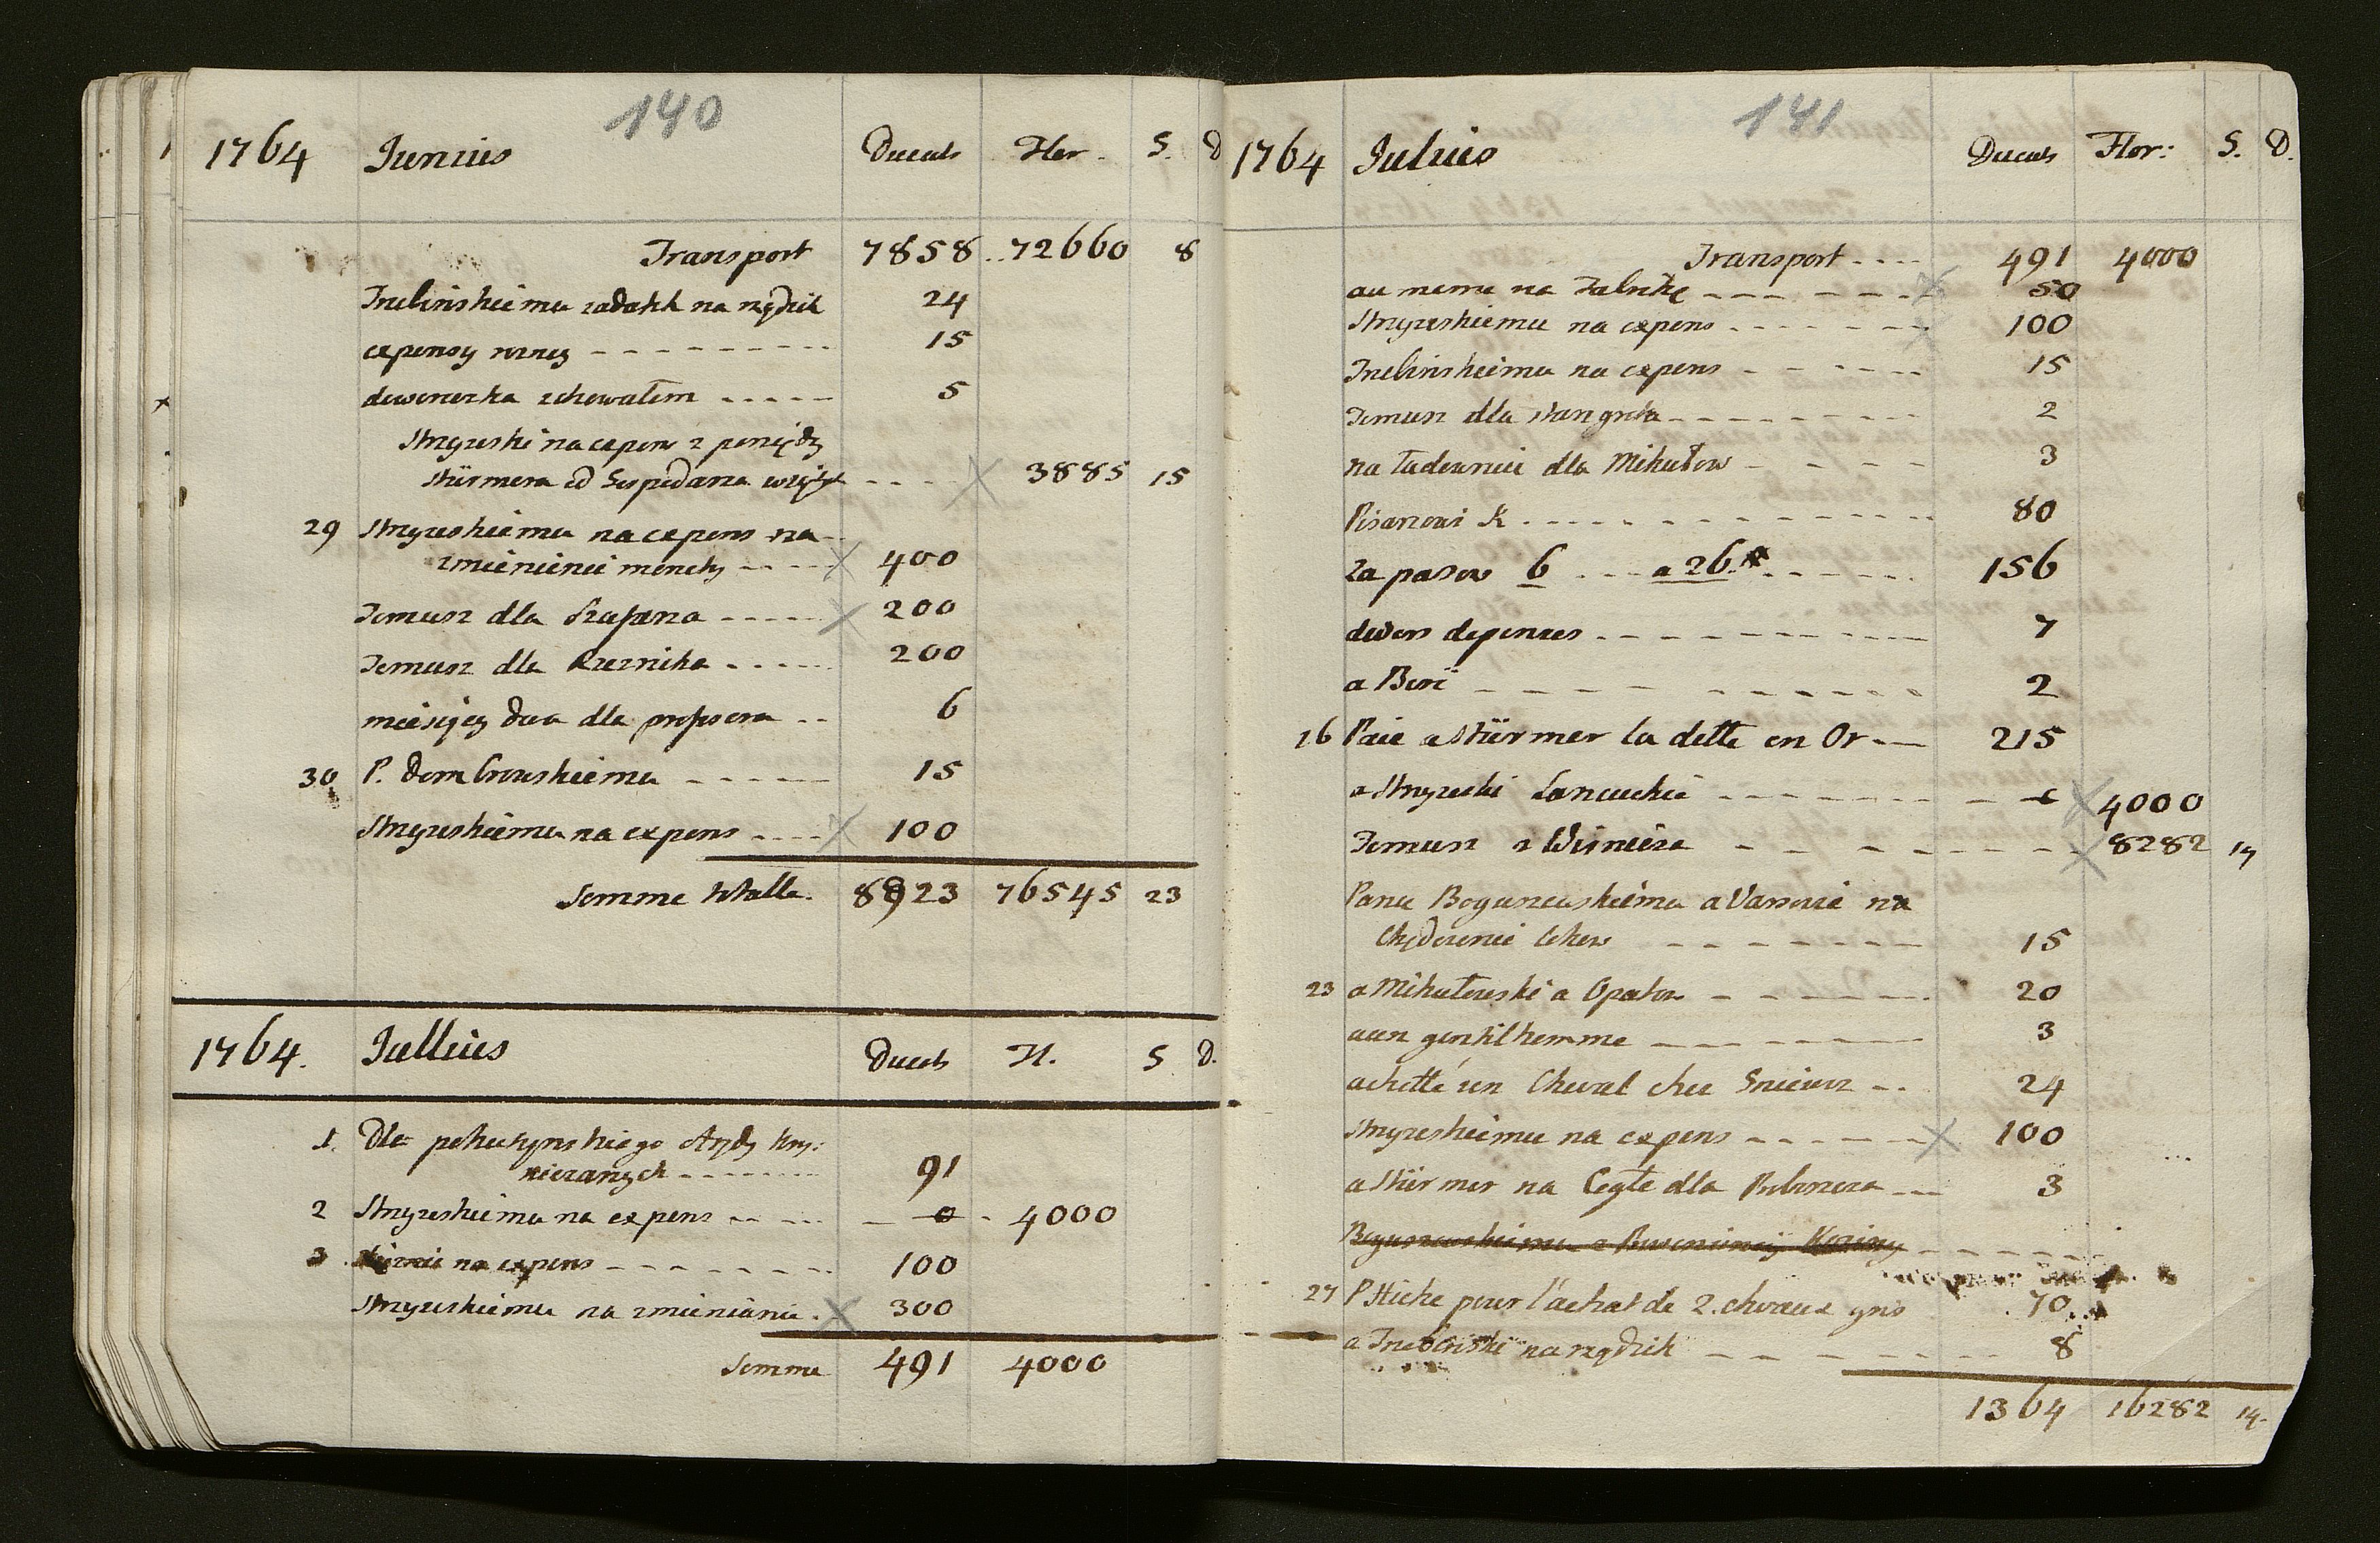 140
1764 Junius Ducats Flor. S. D
Transport 7858 72660 8
Trebinskiemu zadatek na rzędzik 24
expensy rożney 15
dworczka zchowałem 5
Stryzeski na expens z peniędzy
Stürmera od Gospodarza wziętych 3885 15
29 Stryzeskiemu na expens na
zmienienie monety 400
Temusz dla Szafarza 200
Temusz dla Rzeznika 200
miesięcy dwa dla profsora 6
30 P. dombrowskiemu 15
Stryzeskiemu na expens 100
Somme totalle. 8923 76545 23
1764. Jullius Ducats Fl. S D.
1. Dla pokutynskiego
91
2 Stryzeskiemu na expens 0 4000
3 na expens 100
Stryzeskiemu na zmienianie 300
Somme 491 4000
141
1764 Julius Ducats Flor: S. D.
Transport 491 4000
au meme na Fabrikę 50
Stryzeskiemu na expens 100
Trebinskiemu na expens 15
Temusz dla stangreta 2
na ładownice dla Mikułow 3
Pisarzowi K 80
Za pasow 6 a 26 156
divers depences 7
a Boni 2
16 Paié a Stürmer la dette en Or 215
a Stryzeski Lancuckie 4000
Temusz z Wisnicza 8282 14
Panu Boguszewskiemu a Varsovie na
Chędożenie 15
23 a Mikułowski a Opatow 20
a un gentilhomme 3
achetté un Cheval chez 24
Stryzeskiemu na expens 100
a Stürmer na Cegłe dla 3
Boguszewskiemu
27 P Hicke pour l'achat de 2. chevaux gris 70
a Trebinski na rzędzik 8
1364 16282 14.